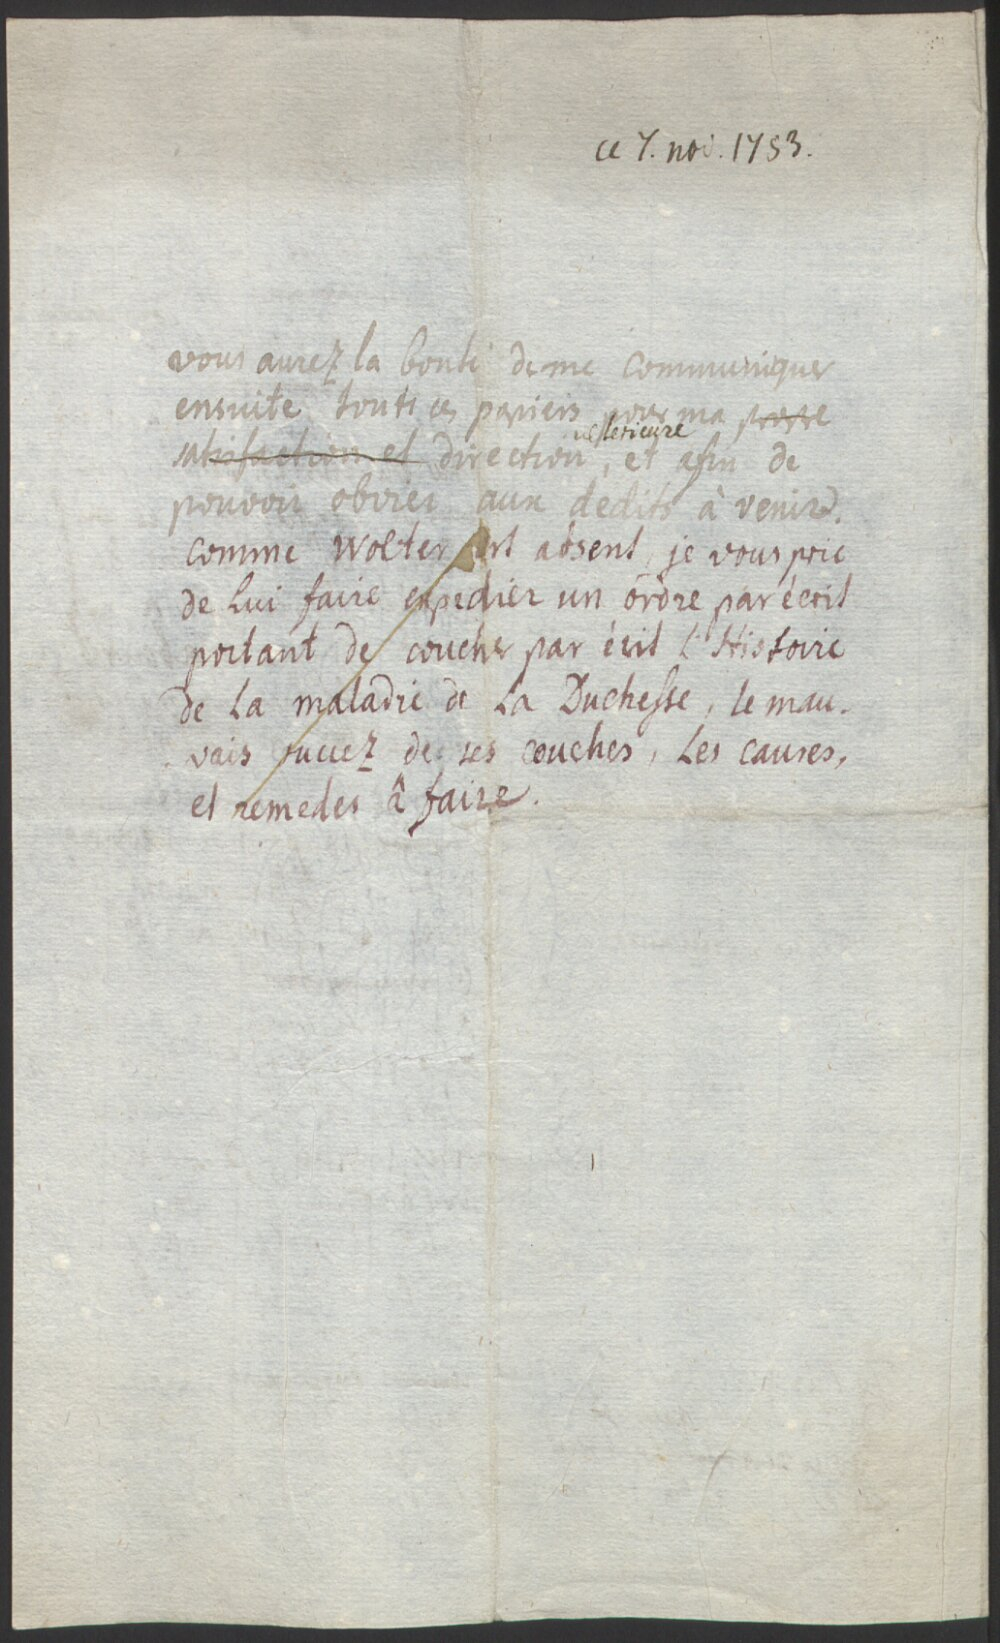 ce 7. nov. 1753.
vous aurez la bonté de me communiquer
ensuite touts ces papiers pour ma propre
ulterieure
satisfaction et direction, et afin de
pouvoir obvier aux dedits à venir.
comme Wolter est absent, je vous prie
de Lui faire expedier un ordre par écrit
portant de coucher par écrit L'Histoire
de La maladie de La Duchesse, le mau-
vais succez de ses couches, Les causes,
et remedes â faire.